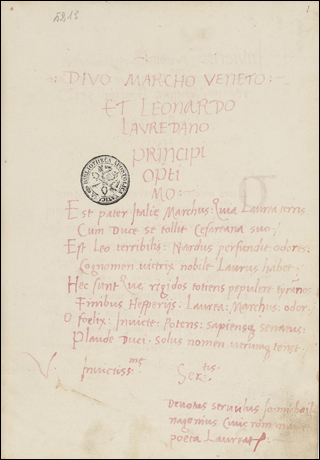 59,15
DIVO MARCHO VENETO:
ET LEONARDO
LAVREDANO
PRINCIPI
OPTI
MO:
Est pater Italie Marchus: Quia Laurea terris
Cum Duce se tollit Cesareana suo:
Est Leo terribilis: Nardus perfundit odores:
Cognomen victrix nobile Laurus habet:
Hec sunt que rigidos totiens pepulere tyranos
Finibus Hesperijs. Laurea: Marchus: odor.
O foelix: Invicte: Potens: sapiensq senatus:
Plaude Duci. Solus nomen utrumq tenet.
Invictiss me
Ser tus
Devotus servulus Jo: michael
nagonius Civis romanus
poeta Laureat